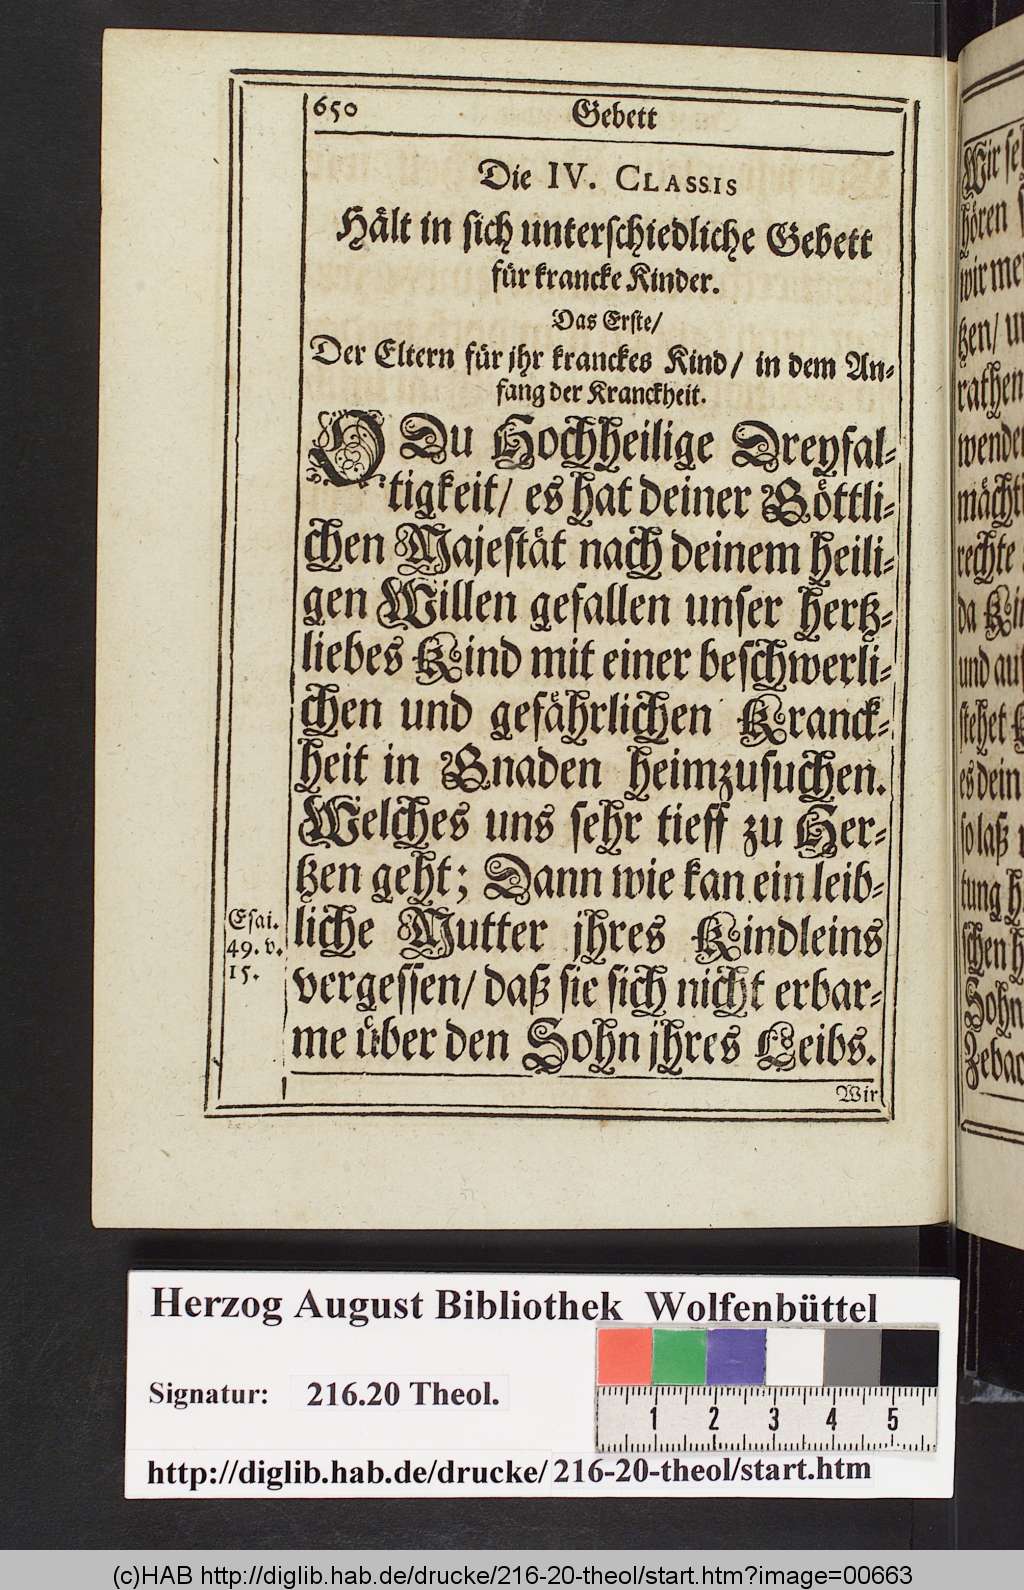 650 Gebett
Die IV. CLASSIS
Hält in sich unterschiedliche Gebett
für krancke Kinder.
Das Erste/
Der Eltern für jhr kranckes Kind/ in dem An-
fang der Kranckheit.
O Du Hochheilige Dreyfal-
tigkeit/ es hat deiner Göttli-
chen Majestät nach deinem heili-
gen Willen gefallen unser hertz-
liebes Kind mit einer beschwerli-
chen und gefährlichen Kranck-
heit in Gnaden heimzusuchen.
Welches uns sehr tieff zu Her-
tzen geht; Dann wie kan ein leib-
liche Mutter jhres Kindleins
vergessen/ daß sie sich nicht erbar-
me über den Sohn jhres Leibs.
Wir
Esai.
49. v.
15.
Wir se
hören
wir me
tzen/ u
rathen
wende
mächti
rechte
da Ki
und auf
stehet
es dein
so laß
tung h
schen h
Sohn
Zebao
Herzog August Bibliothek Wolfenbüttel
Signatur: 216.20 Theol.
1 2 3 4 5
http://diglib.hab.de/drucke/216-20-theol/start.htm
(c)HAB http://diglib.hab.de/drucke/216-20-theol/start.htm?image=00663